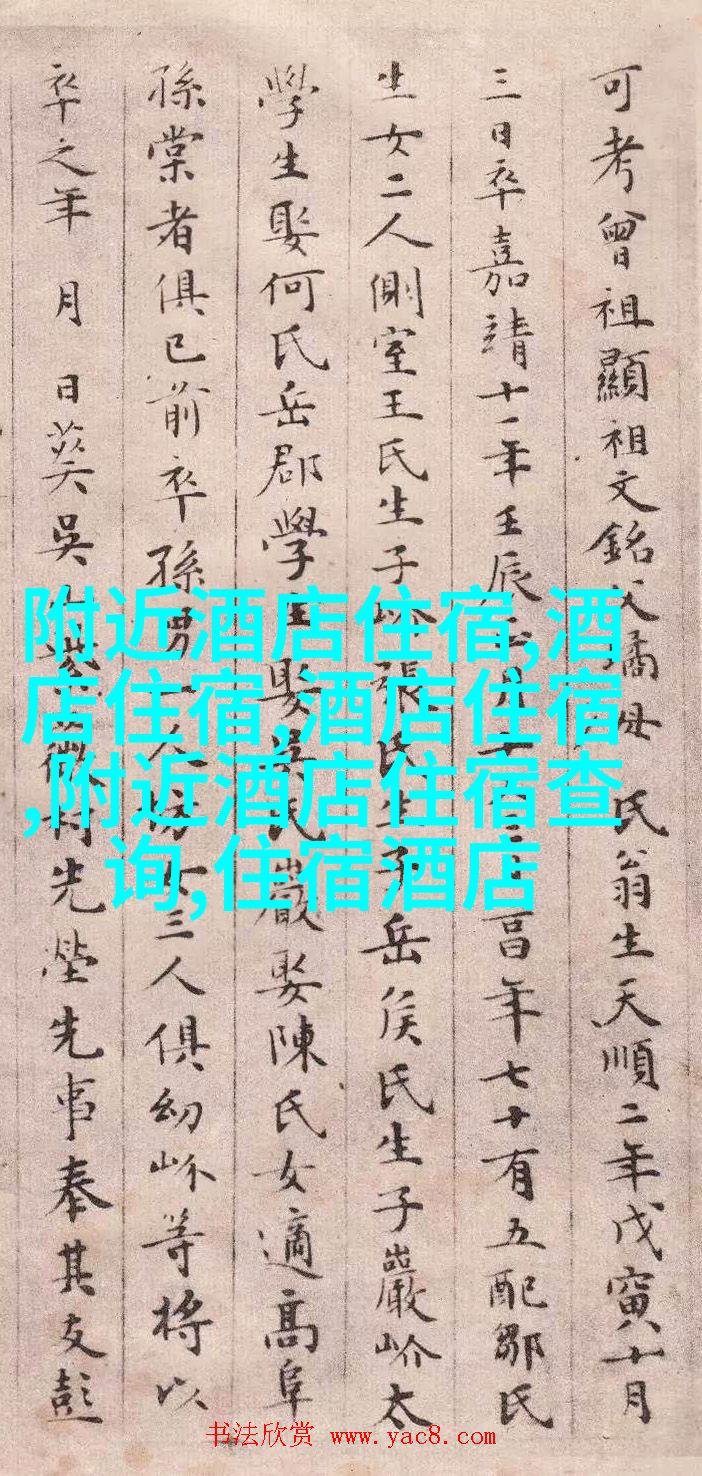 可考曾祖顯祖文銘父母 氏翁生天順二年戊寅十月
三日卒嘉靖十一年壬辰月十年七十有五配鄒氏
生女二人側室王氏生子岕張氏生子岳侯氏生子巖岕太
學生娶何氏岳郡學生娶吳氏巖娶陳氏女適高阜
孫棠者俱已前卒孫男人女三人俱幼岕等將以
卒之年 月 日葬吳先塋先事奉其友彭
附近酒店住宿,酒
店住宿,酒店住宿
,附近酒店住宿查
询,住宿酒店
书法欣赏 www.yac8.com